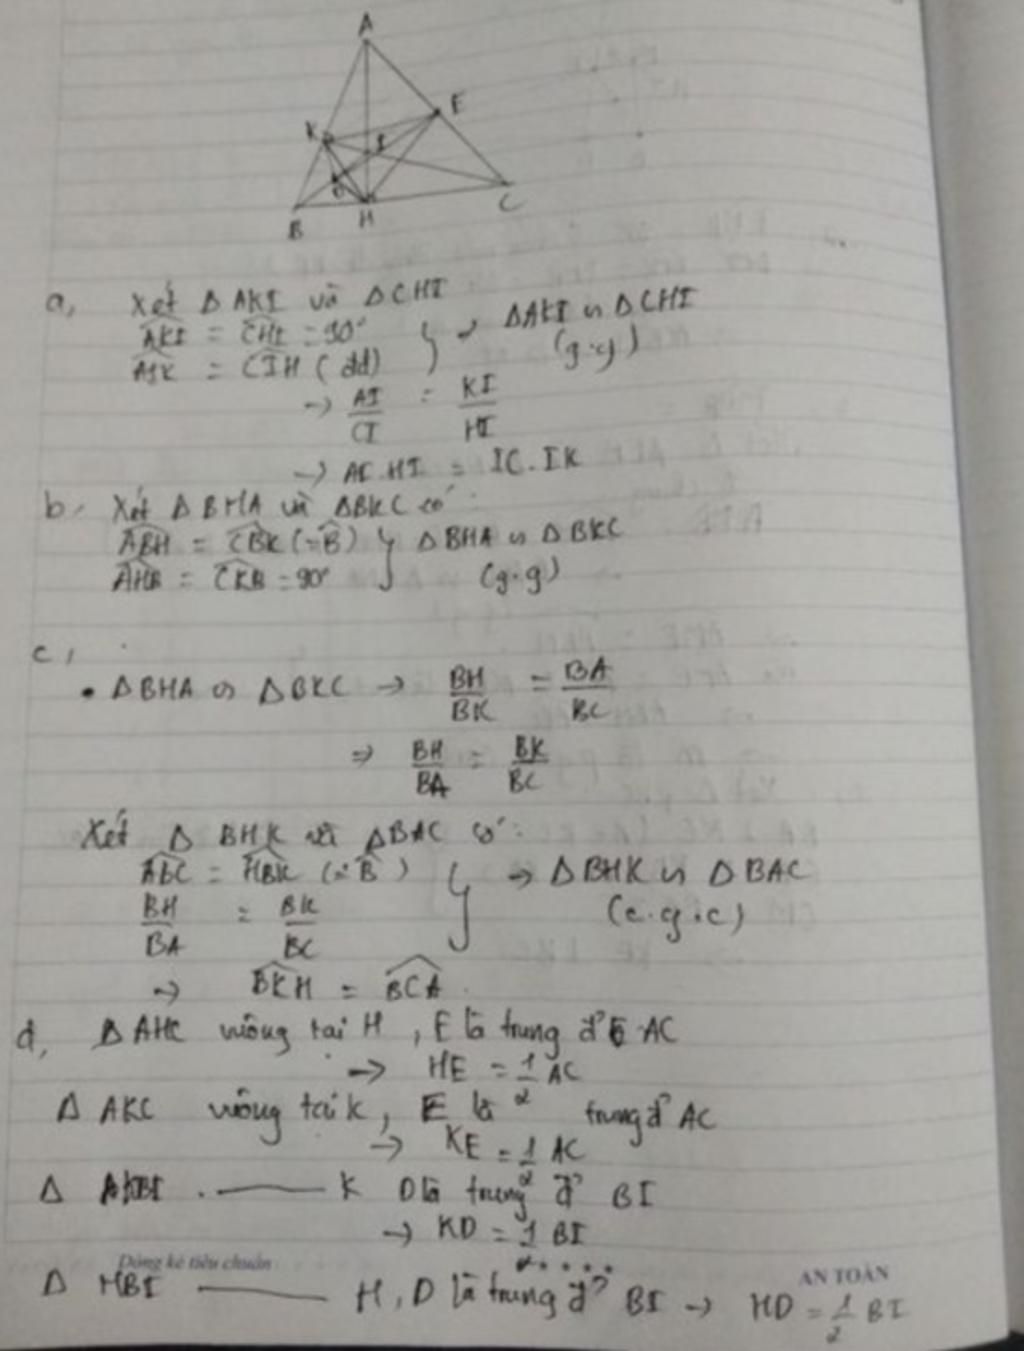 A
K
E
I
D
B
H
C
a, Xét Δ AKI và Δ CHI
AKI = CHI = 90°
AIK = CIH (dd)
} → ΔAKI ∽ ΔCHI
(g.g)
→ AI/CI = KI/HI
→ AI.HI = IC.IK
b, Xét Δ BHA và ΔBKC có:
ABH = CBK (=B) } Δ BHA ∽ Δ BKC
AHB = CKB = 90° (g.g)
c,
• Δ BHA ∽ Δ BKC → BH/BK = BA/BC
⇒ BH/BA = BK/BC
Xét Δ BHK và ΔBAC có:
ABC = HBK (=B) } → Δ BHK ∽ Δ BAC
BH/BA = BK/BC (c.g.c)
→ BKH = BCA
d, Δ AHC vuông tại H, E là trung đ' AC
→ HE = 1/2 AC
Δ AKC vuông tại K, E là trung đ' AC
→ KE = 1/2 AC
Δ KBI — K D là trung đ' BI
→ KD = 1/2 BI
Dòng kẻ tiêu chuẩn
AN TOÀN
Δ HBI — H, D là trung đ' BI → HD = 1/2 BI